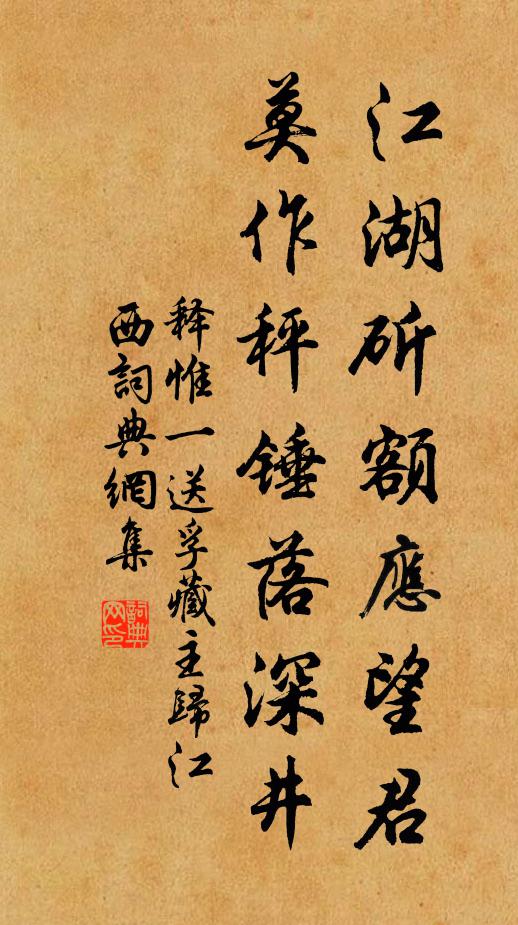 江湖斫額應望君
莫作秤錘落深井
释惟一送孚藏主歸江
西詞典網集
詞典网印